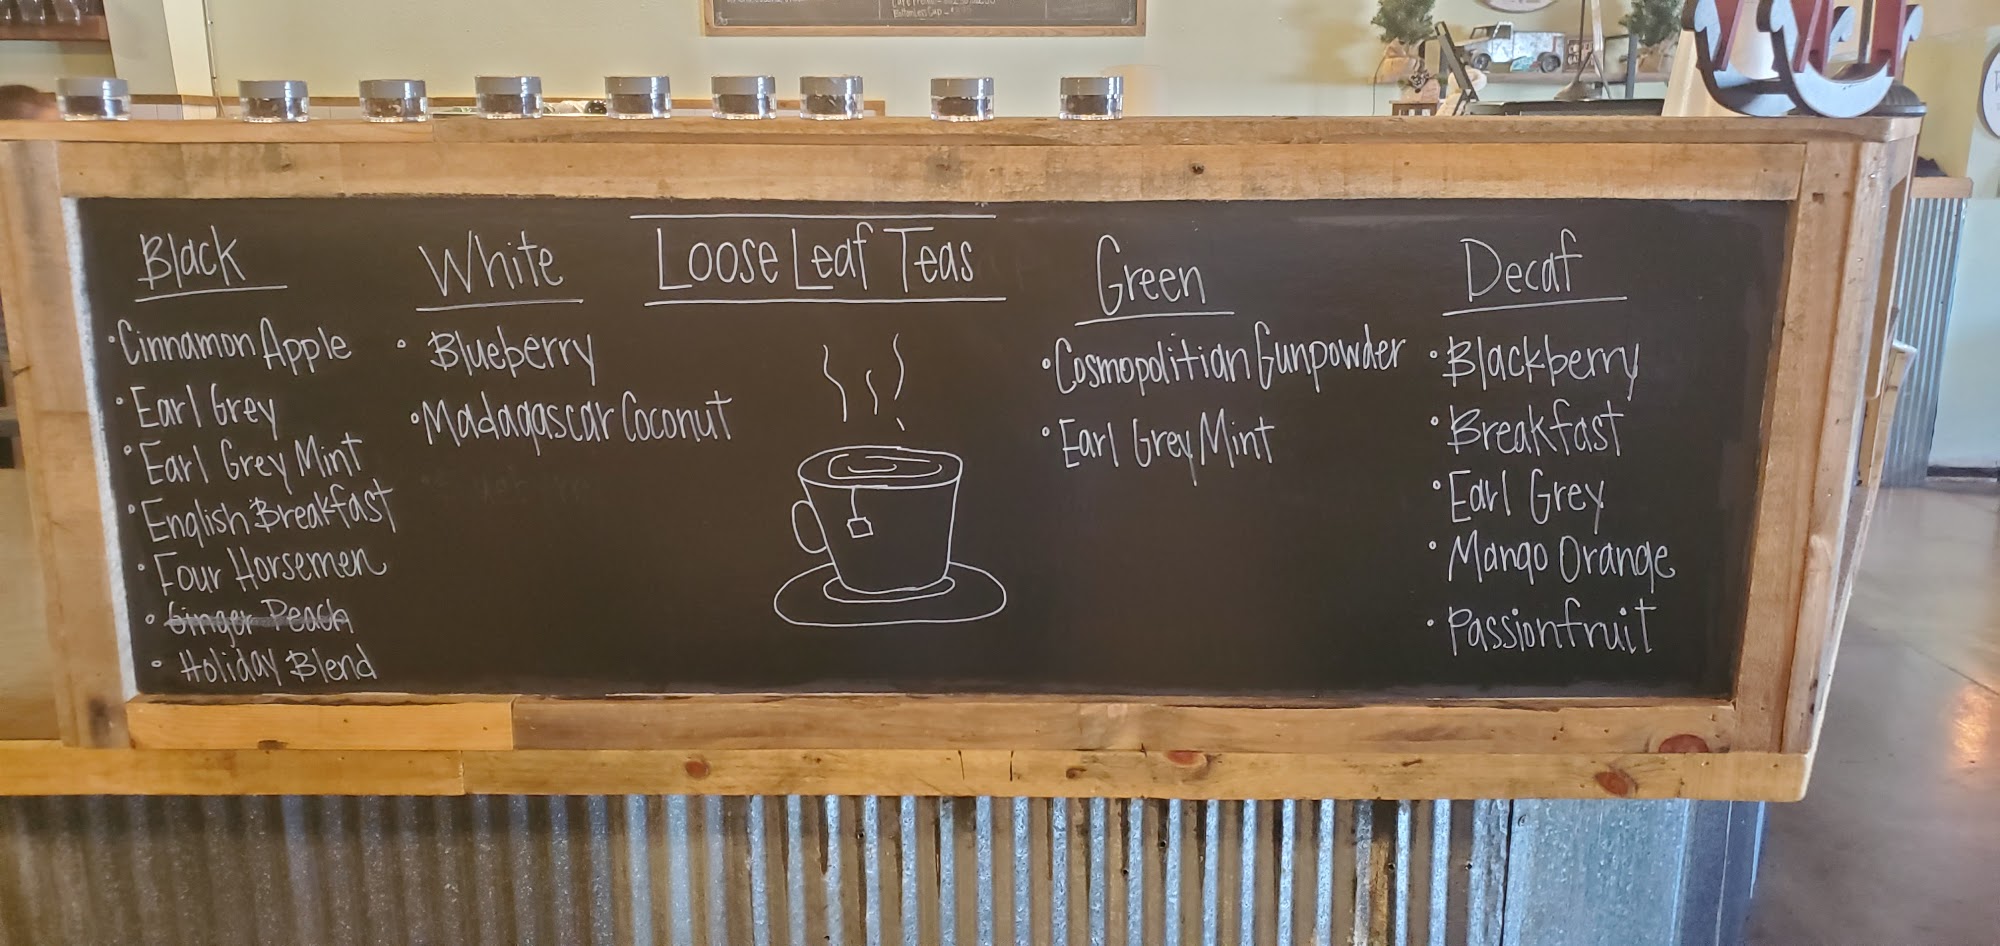 Loose Leaf Teas
Black
Cinnamon Apple
Earl Grey
Earl Grey Mint
English Breakfast
Four Horsemen
Ginger Peach
Holiday Blend
White
Blueberry
Madagascar Coconut
Green
Cosmopolitian Gunpowder
Earl Grey Mint
Decaf
Blackberry
Breakfast
Earl Grey
Mango Orange
Passionfruit